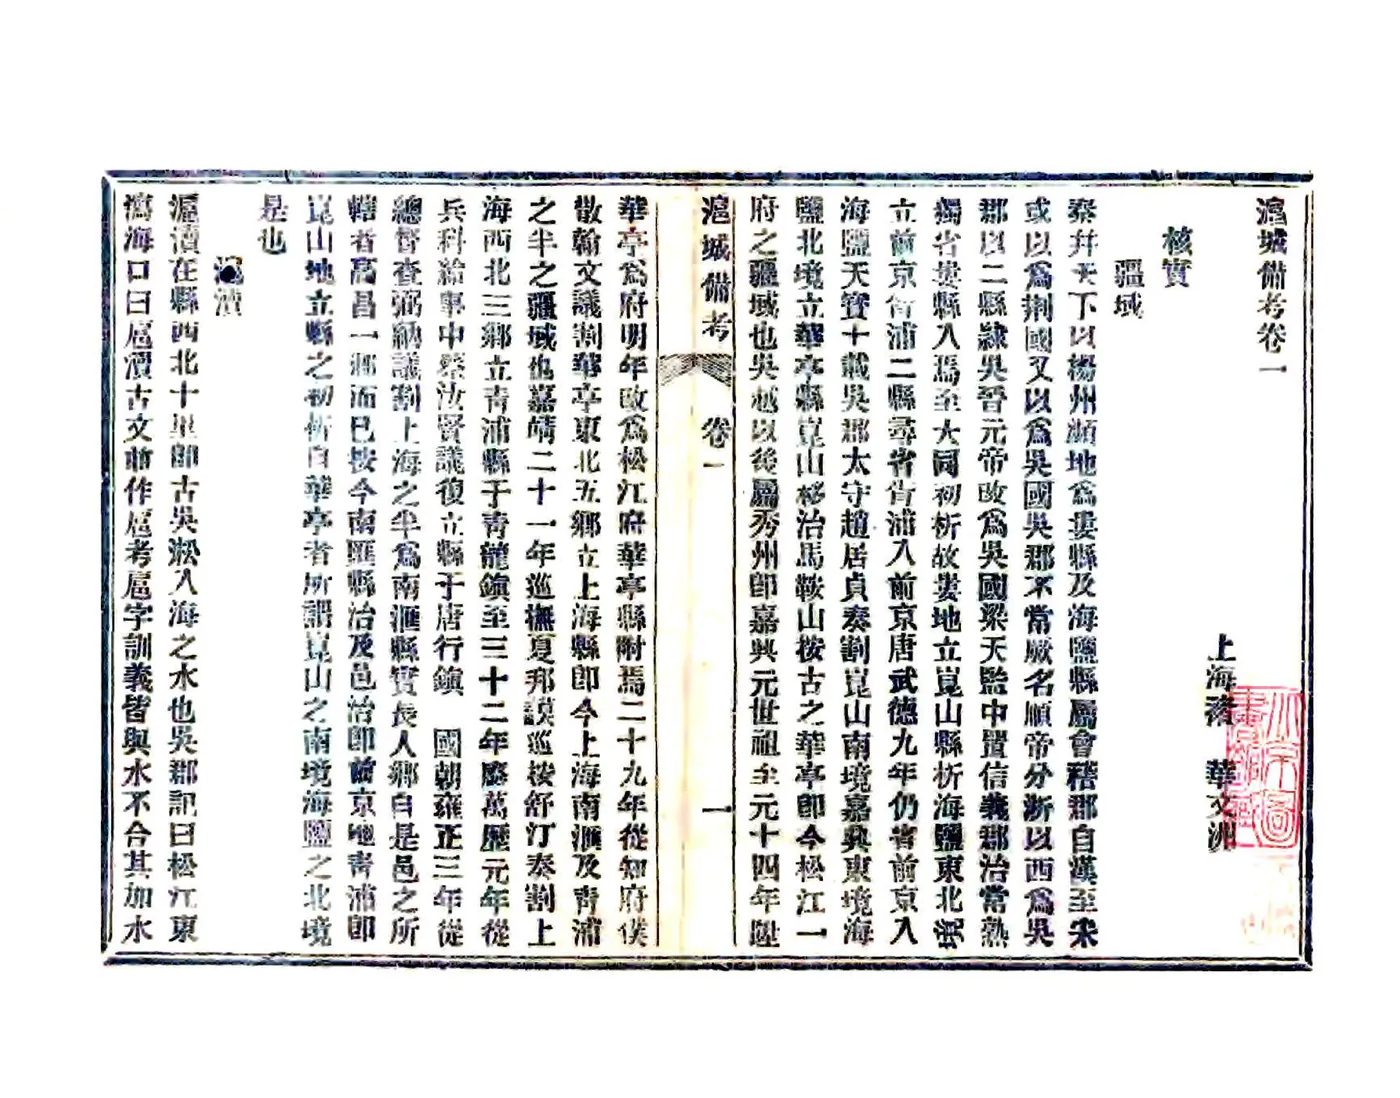 滬城備考卷一
上海褚 華文洲
核實
疆域
秦幷天下以楊州瀕地爲婁縣及海鹽縣屬會稽郡自漢至宋
或以爲荆國又以爲吳國吳郡不常厥名順帝分浙以西爲吳
郡以二縣隸吳晉元帝改爲吳國梁天監中置信義郡治常熟
獨省婁縣入焉至大同初析故婁地立崑山縣析海鹽東北
立前京胥浦二縣尋省胥浦入前京唐武德九年仍省前京入
海鹽天寶十載吳郡太守趙居貞奏割崑山南境嘉興東境海
鹽北境立華亭縣崑山移治馬鞍山按古之華亭卽今松江一
府之疆域也吳越以後屬秀州卽嘉興元世祖至元十四年陞
滬城備考 卷一 一
華亭爲府明年改爲松江府華亭縣附焉二十九年從知府僕
散翰文議割華亭東北五鄉立上海縣卽今上海南滙及青浦
之半之疆域也嘉靖二十一年巡撫夏邦謨巡按舒汀奏割上
海西北三鄉立青浦縣于青龍鎮至三十二年廢萬歷元年從
兵科給事中蔡汝賢議復立縣于唐行鎮 國朝雍正三年從
總督查弼納議割上海之半爲南滙縣實長人鄉自是邑之所
轄者高昌一鄉而已按今南匯縣治及邑治卽前京地青浦卽
崑山地立縣之初析自華亭者所謂崑山之南境海鹽之北境
是也
滬瀆
滬瀆在縣西北十里卽古吳淞入海之水也吳郡記曰松江東
瀉海口曰扈瀆古文前作扈考扈字訓義皆與水不合其加水